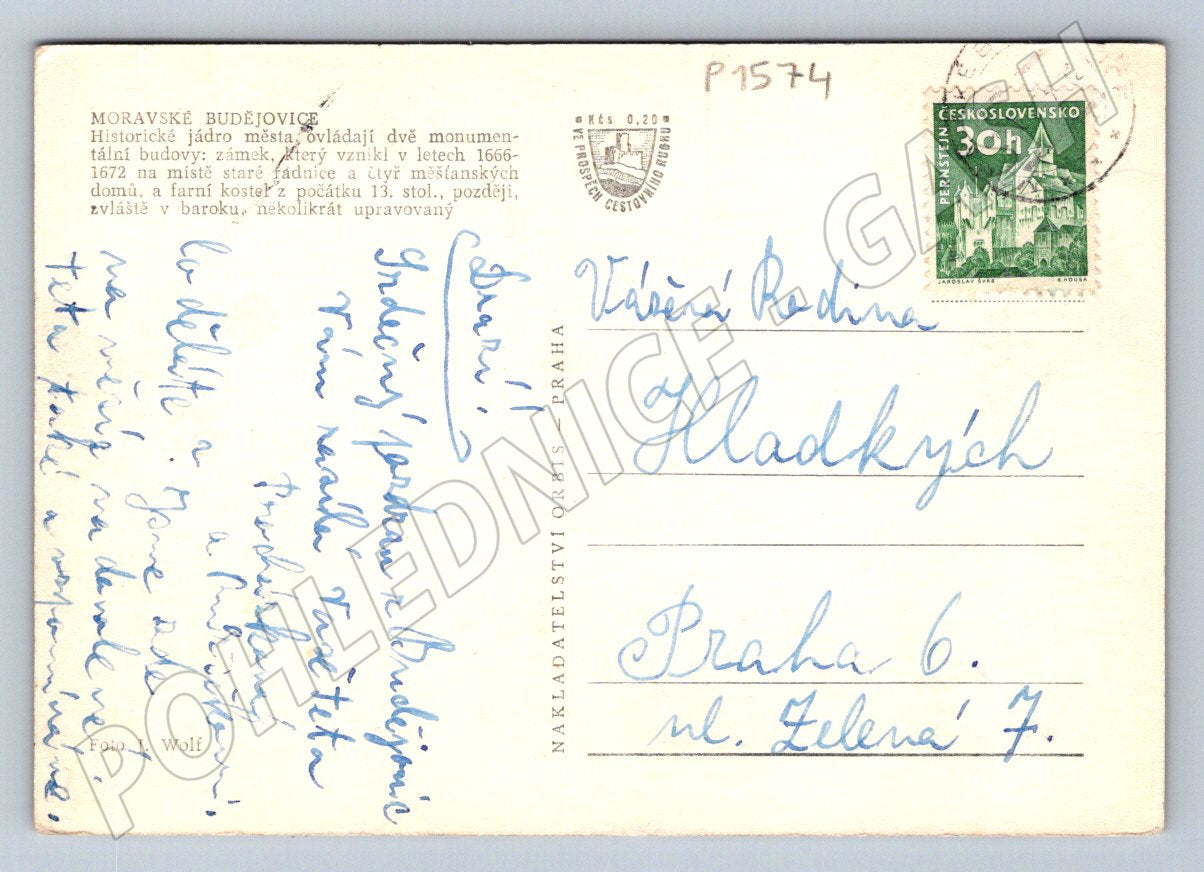 P1574
MORAVSKÉ BUDĚJOVICE
Historické jádro města ovládají dvě monumen-
tální budovy: zámek, který vznikl v letech 1666-
1672 na místě staré radnice a čtyř měšťanských
domů, a farní kostel z počátku 13. stol., později,
zvláště v baroku, několikrát upravovaný
Kčs 0,20
VE PROSPĚCH CESTOVNÍHO RUCHU
ČESKOSLOVENSKO
30h
PERNŠTEJN
JAROSLAV ŠVÁB
Drazí!
Srdečný pozdrav z Budějovic
Vám zasílá Vaše teta
a
Co děláte
. Jsme zde
na
teta také a vzpomínáme.
Foto J. Wolf
NAKLADATELSTVÍ ORBIS — PRAHA
Vážená Rodina
Hladkých
Praha 6.
ul. Zelená 7.
POHLEDNICE - GASH